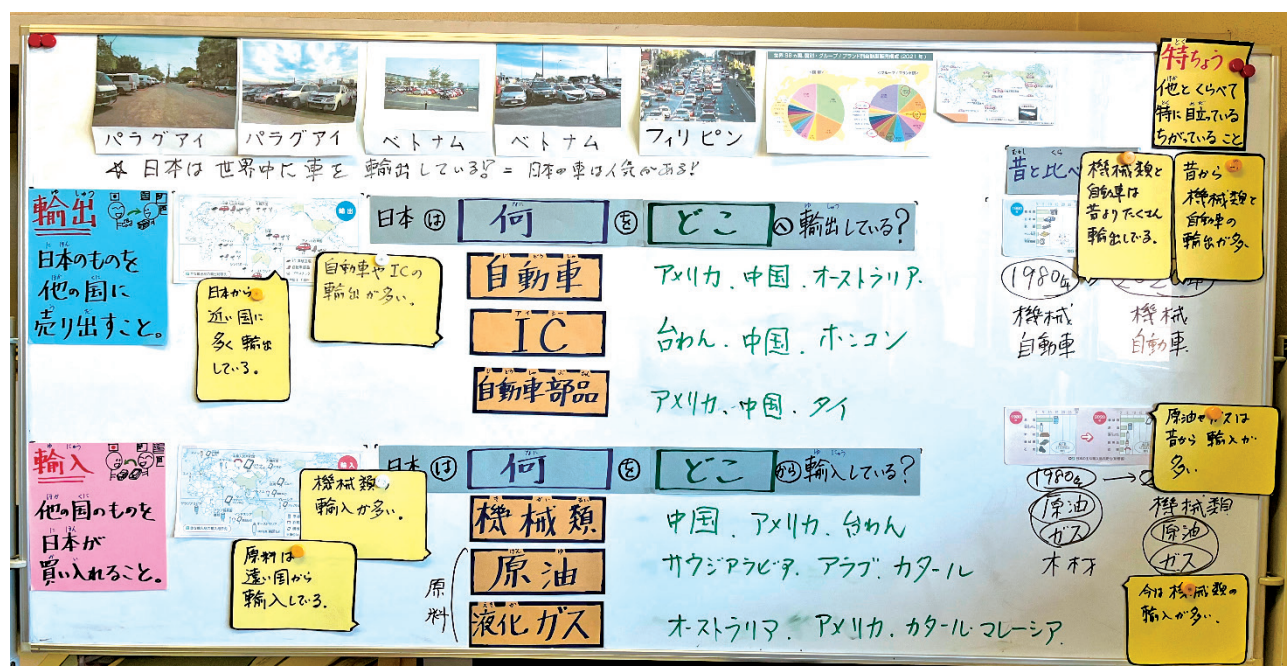 パラグアイ
パラグアイ
ベトナム
ベトナム
フィリピン
☆ 日本は世界中に車を輸出している!? = 日本の車は人気がある!
特ちょう
他とくらべて
特に目立っている
ちがっていること
輸出
日本のものを
他の国に
売り出すこと。
輸出
日本から
近い国に
多く輸出
している。
自動車やICの
輸出が多い。
日本は 何 を どこ へ輸出している?
自動車
アメリカ、中国、オーストラリア.
IC
台わん、中国、ホンコン
自動車部品
アメリカ、中国、タイ
昔と比べ
機械類と
自動車は
昔よりたくさん
輸出してる。
昔から
機械類と
自動車の
輸出が多い
1980年
機械
自動車
機械
自動車
輸入
他の国のものを
日本が
買い入れること。
輸入
機械類の
輸入が多い.
原料は
遠い国から
輸入してる.
日本は 何 を どこ から輸入している?
機械類
中国 アメリカ、台わん
原料
原油
サウジアラビア、アラブ、カタール
液化ガス
オーストラリア、アメリカ、カタール・マレーシア.
原油やガスは
昔から輸入が
多い.
1980年 →
原油
ガス
木材
機械類
原油
ガス
今は機械類の
輸入が多い.